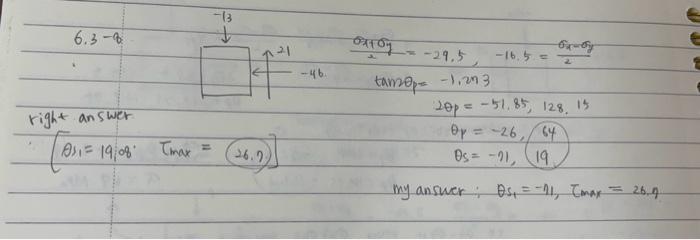 6.3-8
-13
21
-46
σx+σy/2 = -29.5, -16.5 = σx-σy/2
tan2θp = -1.273
2θp = -51.85, 128.15
θp = -26, 64
θs = -71, 19
right answer
[θs1 = 19.08° τmax = 26.7]
my answer : θs1 = -71, τmax = 26.7